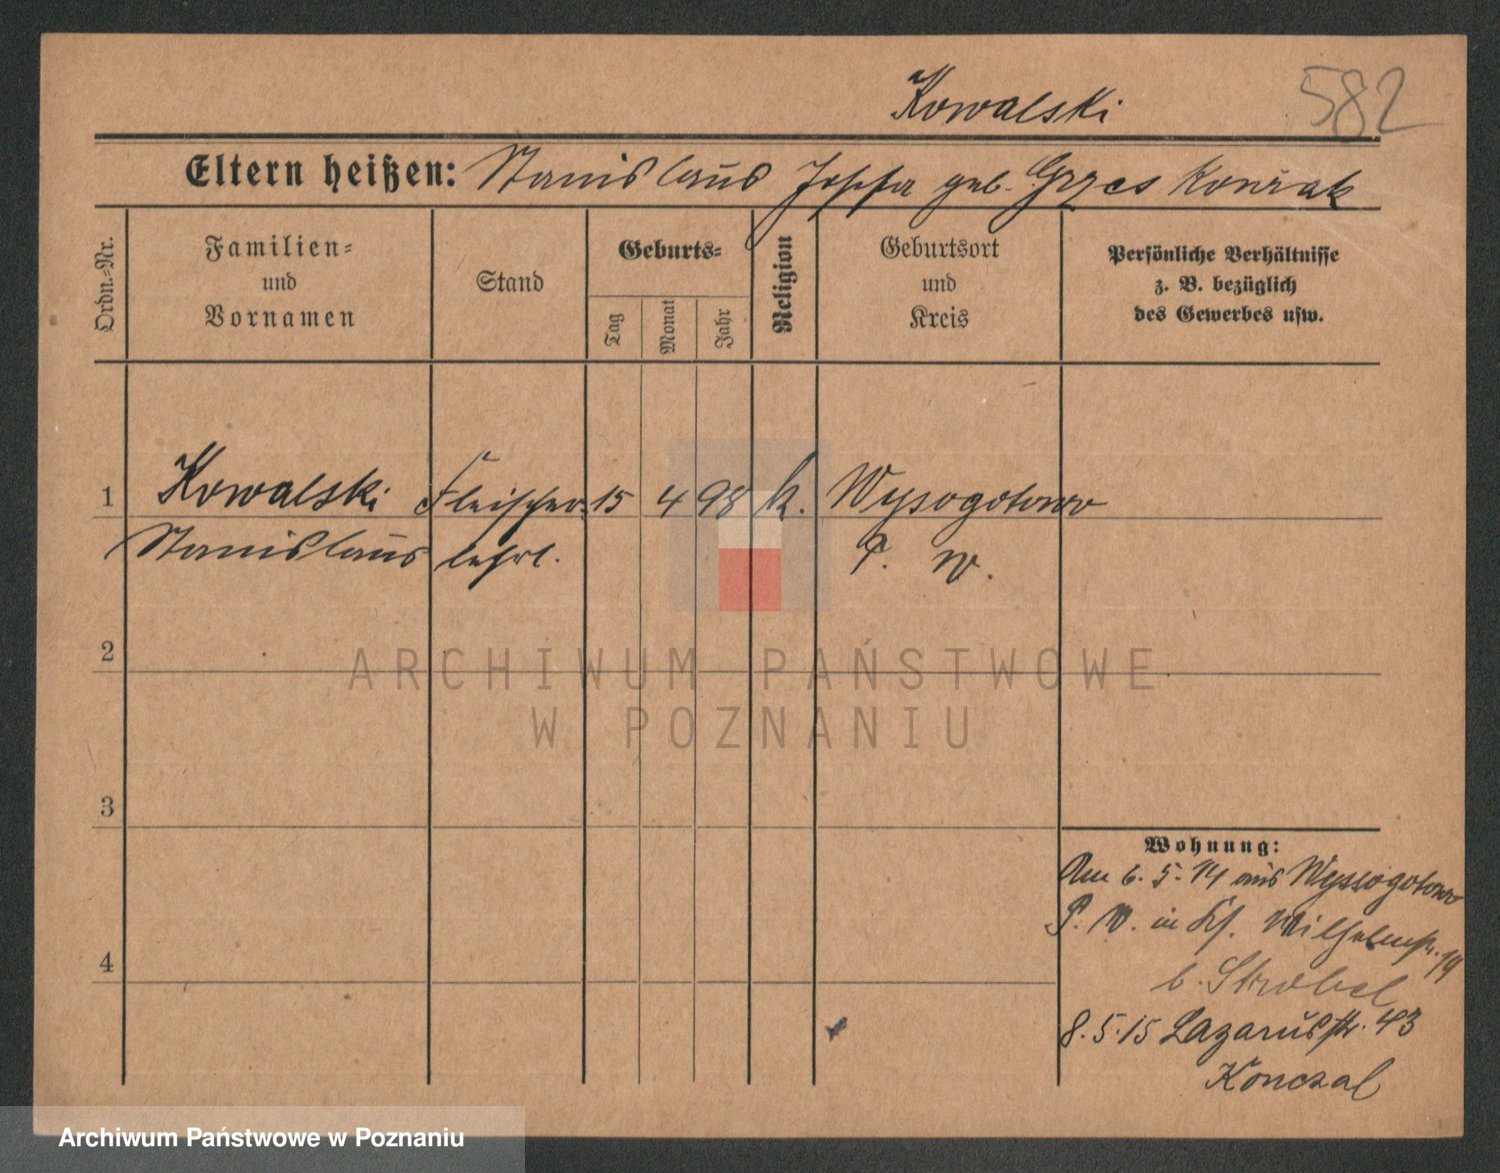 Kowalski 582
Eltern heißen: Stanislaus Josefa geb. Grzeskowiak
Ordn.=Nr.
Familien=
und
Vornamen
Stand
Geburts=
Tag
Monat
Jahr
Religion
Geburtsort
und
Kreis
Persönliche Verhältnisse
z. B. bezüglich
des Gewerbes usw.
1 Kowalski Fleischer- 15 4 98 k. Wysogotowo
Stanislaus lehrl. P. W.
2
3
4
Wohnung:
Am 6. 5. 14 aus Wyssogotowo
P. W. in Wilhelmstr. 14
b. Strobel
8. 5. 15 Lazarusstr. 43
Konczal
ARCHIWUM PAŃSTWOWE
W POZNANIU
Archiwum Państwowe w Poznaniu